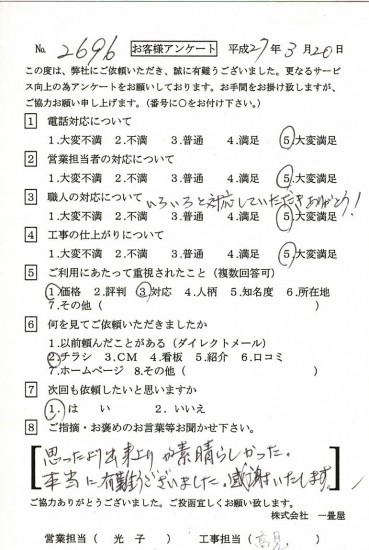 No. 2696 お客様アンケート 平成27年3月20日
この度は、弊社にご依頼いただき、誠に有難うございました。更なるサービ
ス向上の為アンケートをお願いしております。お手間をお掛け致しますが、
ご協力お願い申し上げます。（番号に○をお付け下さい。）
1 電話対応について
1.大変不満 2.不満 3.普通 4.満足 5.大変満足
2 営業担当者の対応について
1.大変不満 2.不満 3.普通 4.満足 5.大変満足
3 職人の対応について いろいろと対応していただきありがとう!
1.大変不満 2.不満 3.普通 4.満足 5.大変満足
4 工事の仕上がりについて
1.大変不満 2.不満 3.普通 4.満足 5.大変満足
5 ご利用にあたって重視されたこと（複数回答可）
1.価格 2.評判 3.対応 4.人柄 5.知名度 6.所在地
7.その他（ ）
6 何を見てご依頼いただきましたか
1.以前頼んだことがある（ダイレクトメール）
2.チラシ 3.CM 4.看板 5.紹介 6.口コミ
7.ホームページ 8.その他（ ）
7 次回も依頼したいと思いますか
1.は い 2.いいえ
8 ご指摘・お褒めのお言葉等お聞かせ下さい。
思ったより出来上りが素晴らしかった。
本当に有難うございました。感謝いたします。
ご協力ありがとうございました。ご投函宜しくお願い致します。
株式会社 一畳屋
営業担当（ 光 子 ） 工事担当（ 高見 ）